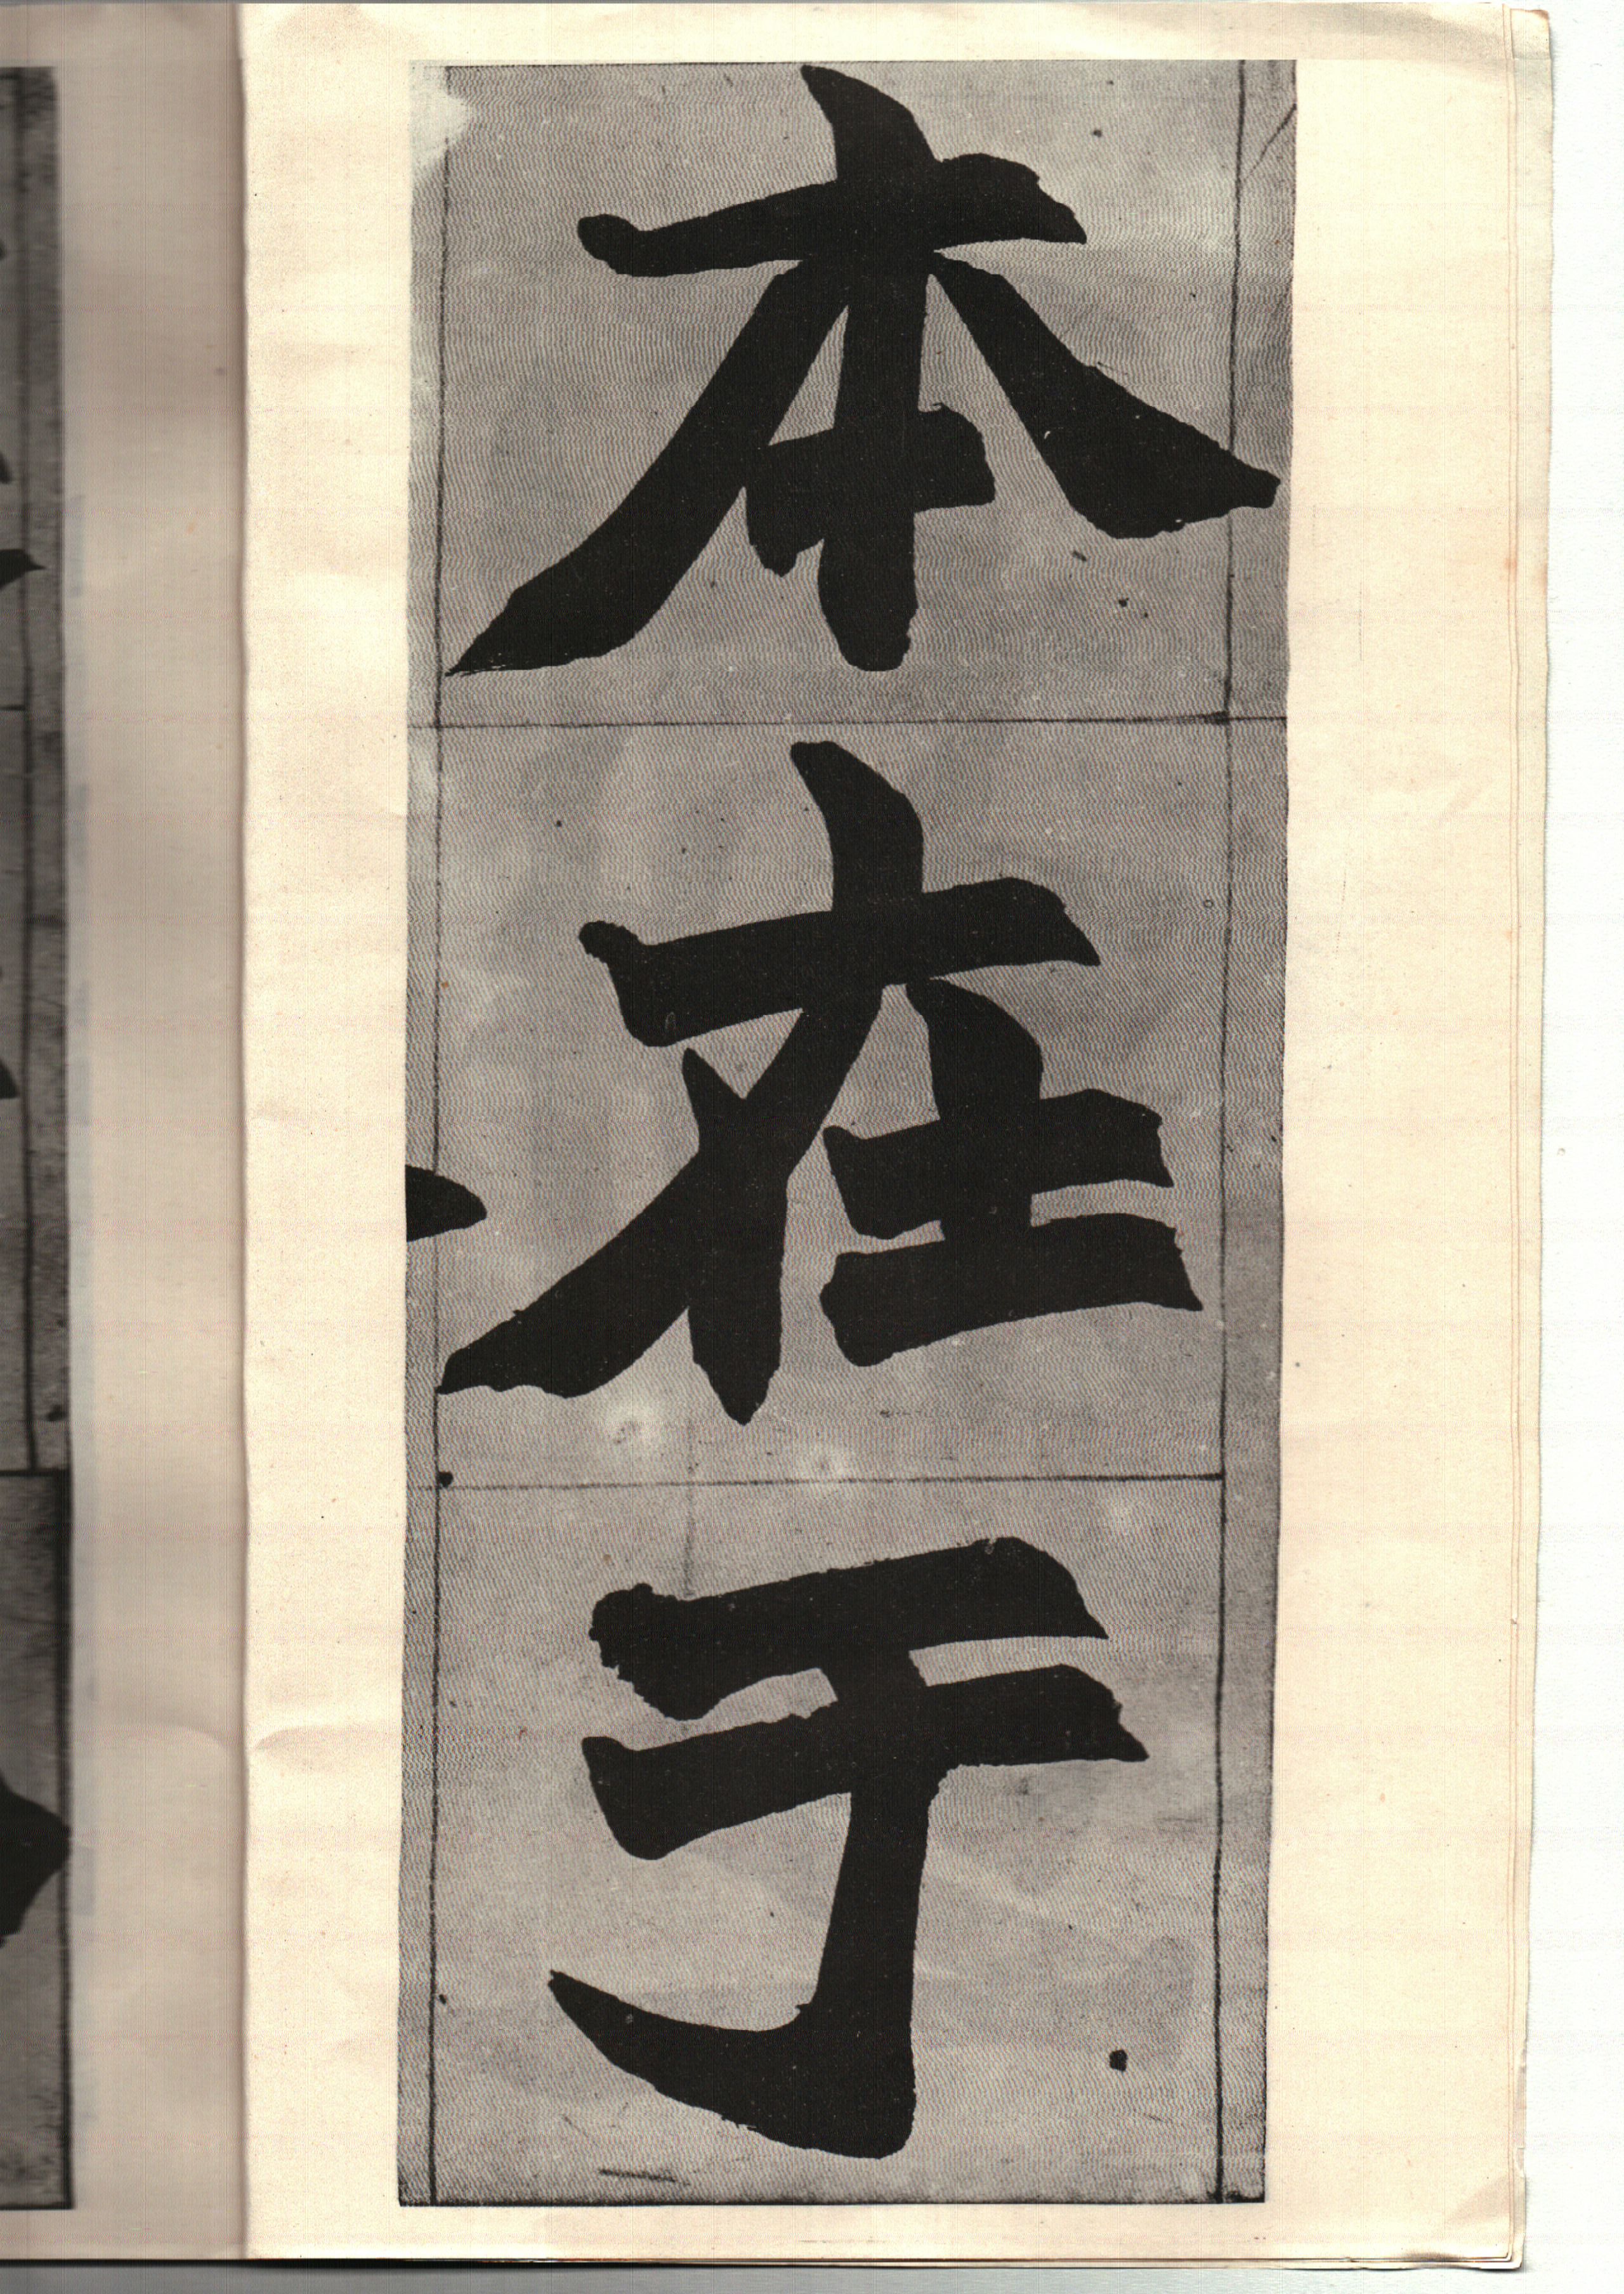 本在于